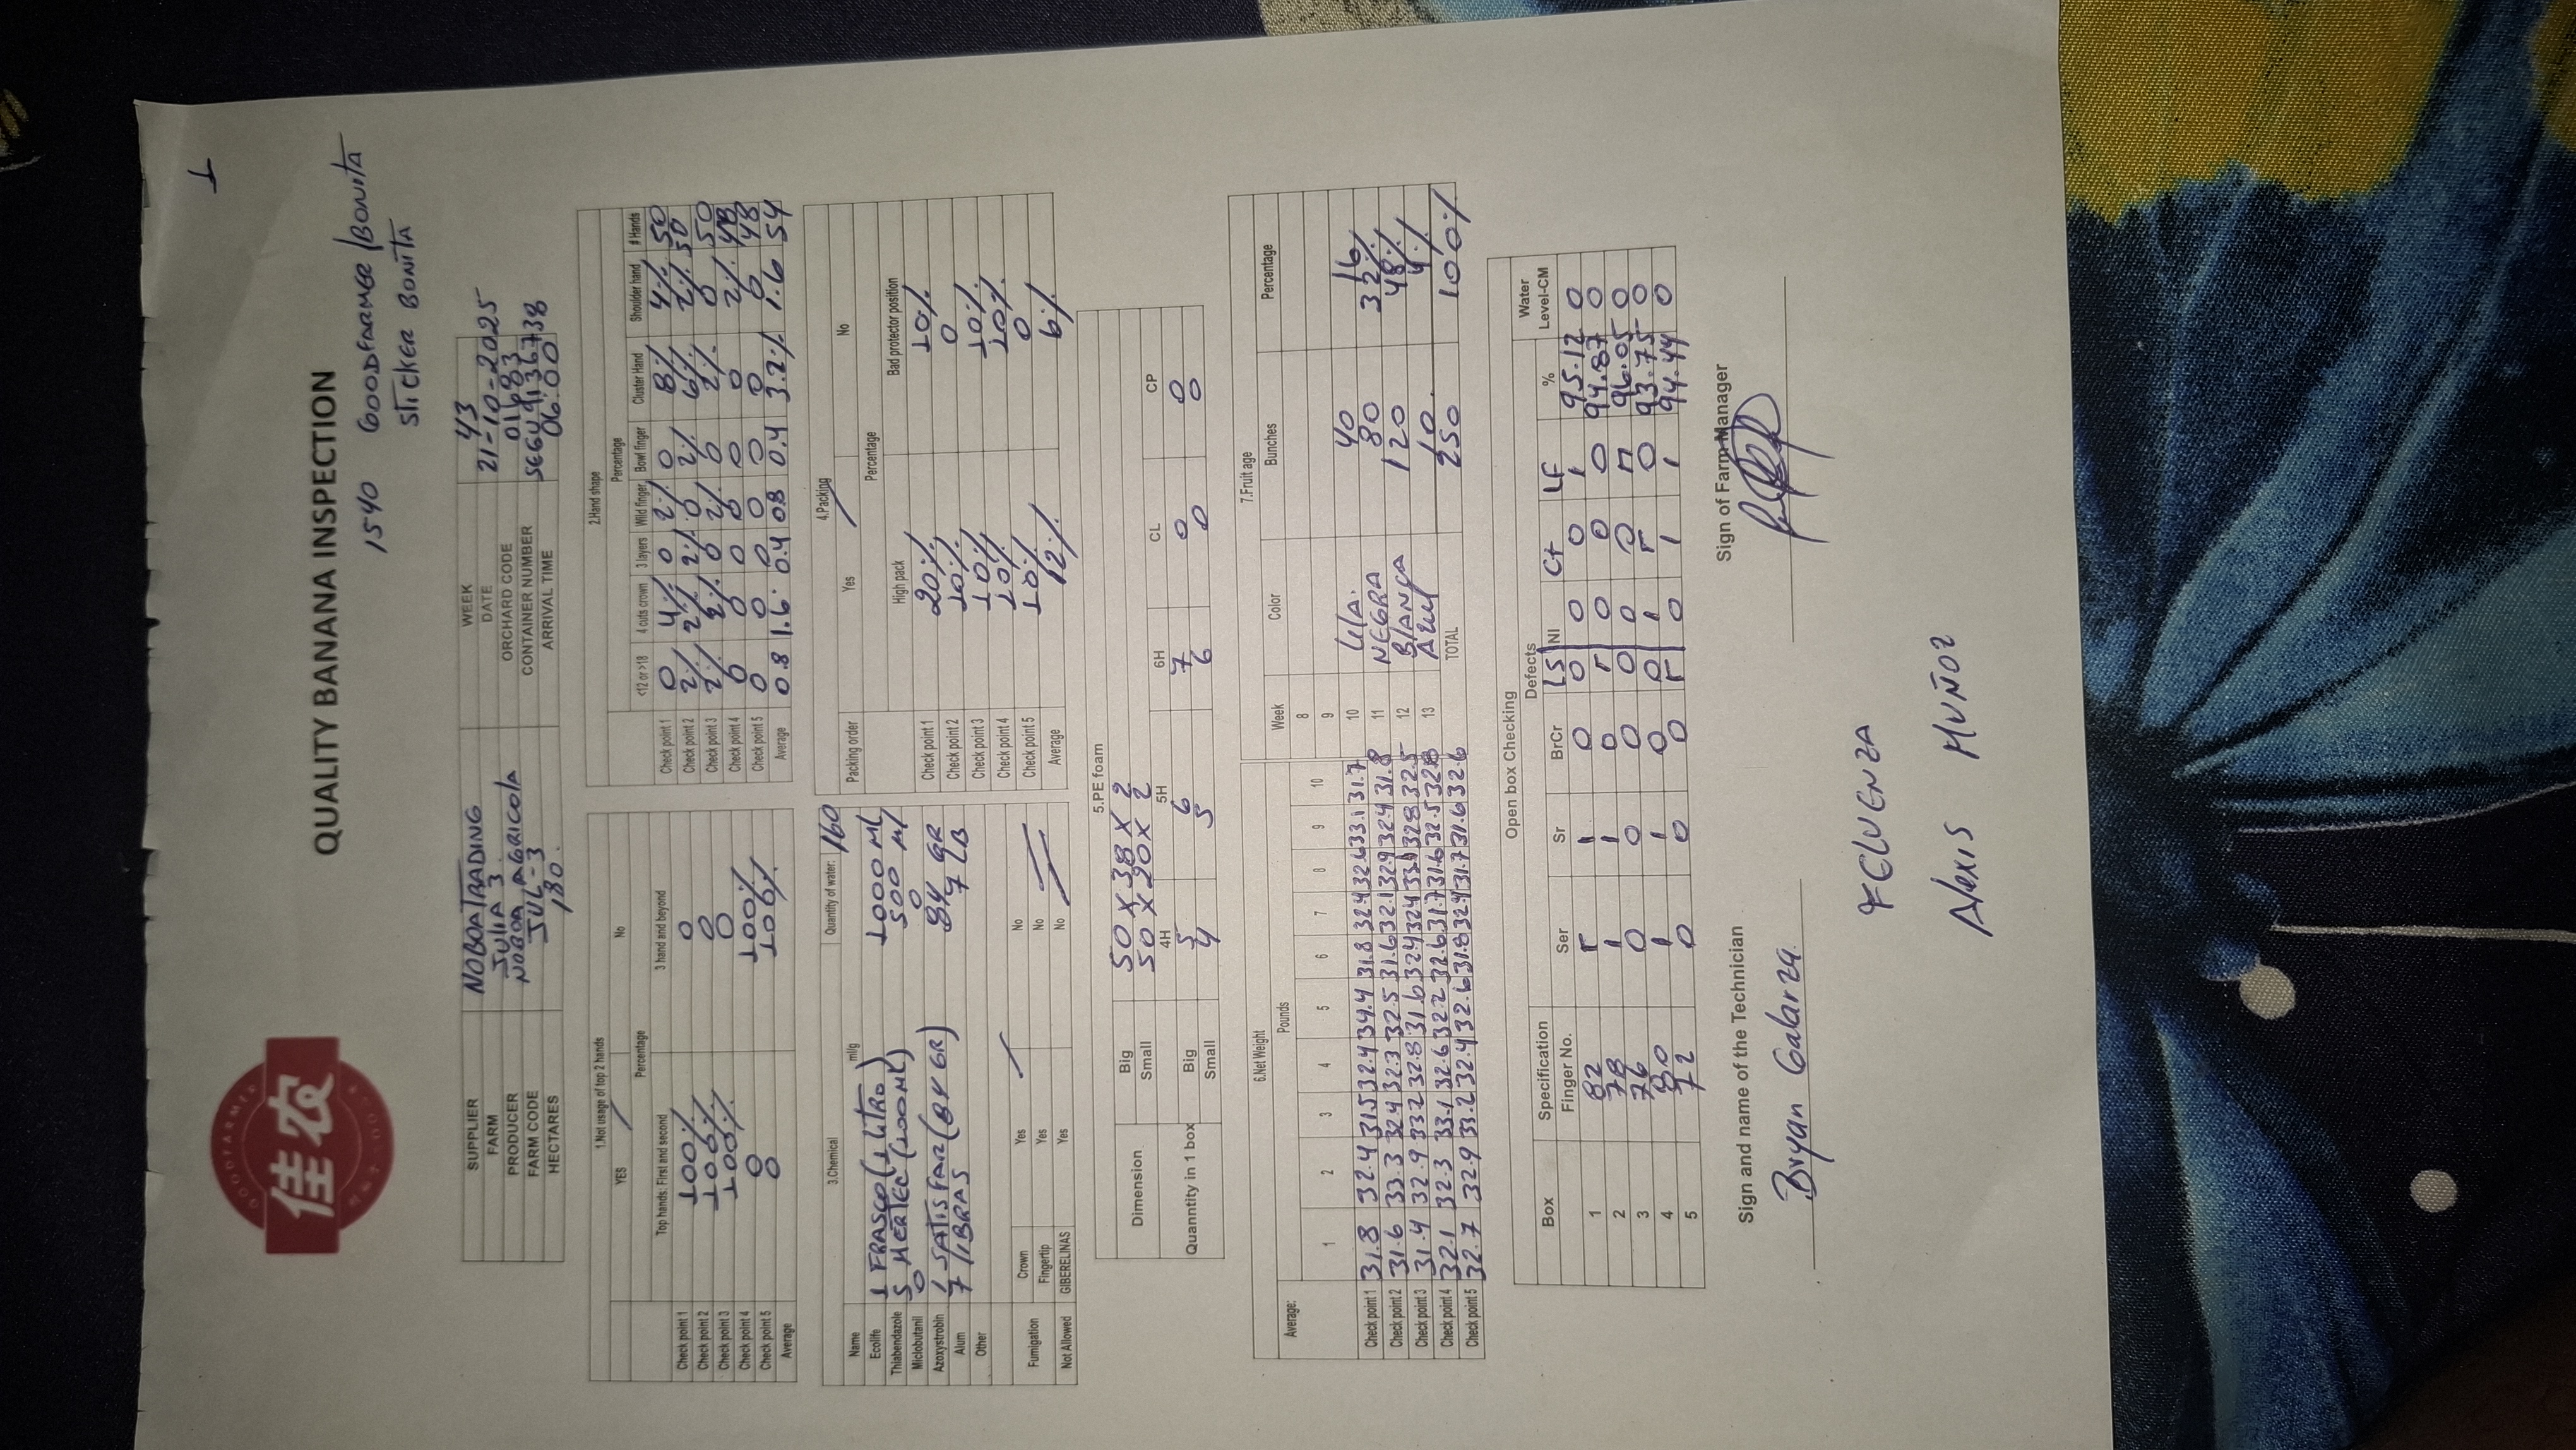 1
GOODFARMER
佳农
QUALITY BANANA INSPECTION
1540 GOODFARMER/BONITA
STICKER BONITA
SUPPLIER NOBOATRADING WEEK 43
FARM JULIA 3. DATE 21-10-2025
PRODUCER NOBOA AGRICOLA ORCHARD CODE 01683
FARM CODE JUL-3 CONTAINER NUMBER SEGU9136738
HECTARES 180. ARRIVAL TIME 06:00
1.Not usage of top 2 hands
YES / No
Percentage
Top hands: First and second 3 hand and beyond
Check point 1 100% 0
Check point 2 100% 0
Check point 3 100% 0
Check point 4 0 100%
Check point 5 0 100%
Average
2.Hand shape
Percentage
<12 or >18 4 cuts crown 3 layers Wild finger Bowl finger Cluster Hand Shoulder hand # Hands
Check point 1 0 4% 0 2% 0 8% 4% 50
Check point 2 2% 2% 2% 0 2% 6% 2% 50
Check point 3 2% 2% 0 2% 0 2% 0 50
Check point 4 0 0 0 0 0 0 2% 48
Check point 5 0 0 0 0 0 0 0 48
Average 0.8 1.6 0.4 0.8 0.4 3.2% 1.6 54
3.Chemical Quantity of water: 160
Name ml/g
Ecolife 1 FRASCO (1 LITRO) 1000 ML
Thiabendazole 5 MERTEC (100ML) 500 Ml
Miclobutanil 0 0
Azoxystrobin 1 SATISFAR (84 GR) 84 GR
Alum 7 LIBRAS 7 LB
Other
Fumigation Crown Yes / No
Fingertip Yes No /
Not Allowed GIBERELINAS Yes No /
4.Packing
Packing order Yes / No
Percentage
High pack Bad protector position
Check point 1 20% 10%
Check point 2 10% 0
Check point 3 10% 10%
Check point 4 10% 10%
Check point 5 10% 0
Average 12% 6%
5.PE foam
Dimension Big 50 X 38 X 2
Small 50 X 20 X 2
4H 5H 6H CL CP
Quanntity in 1 box Big 5 6 7 0 0
Small 4 5 6 0 0
6.Net Weight
Average: Pounds
1 2 3 4 5 6 7 8 9 10
Check point 1 31.8 32.4 31.5 32.4 34.4 31.8 32.4 32.6 33.1 31.7
Check point 2 31.6 33.3 32.4 32.3 32.5 31.6 32.1 32.9 32.4 31.8
Check point 3 31.4 32.9 332 32.8 31.6 324 324 33.1 328 32.5
Check point 4 32.1 32.3 33.1 32.6 32.2 32.6 31.7 31.6 32.5 32.8
Check point 5 32.7 32.9 33.2 32.4 32.6 31.8 32.4 31.7 31.6 32.6
7.Fruit age
Week Color Bunches Percentage
8
9
10 Lila. 40 16
11 NEGRA 80 32%
12 BlANCA 120 48%
13 Azul 10. 4%
TOTAL 250 100%
Open box Checking
Box Specification Defects Water
Finger No. Ser Sr BrCr LS NI Ct LF % Level-CM
1 82 1 0 0 0 0 1 95.12 0
2 78 1 1 0 0 0 0 94.87 0
3 76 0 0 0 0 0 0 96.05 0
4 80 1 1 0 0 1 0 93.75 0
5 72 0 0 0 0 1 1 94.44 0
Sign and name of the Technician Sign of Farm Manager
Bryan Galarza.
FELUENZA
Alexis MUÑOZ